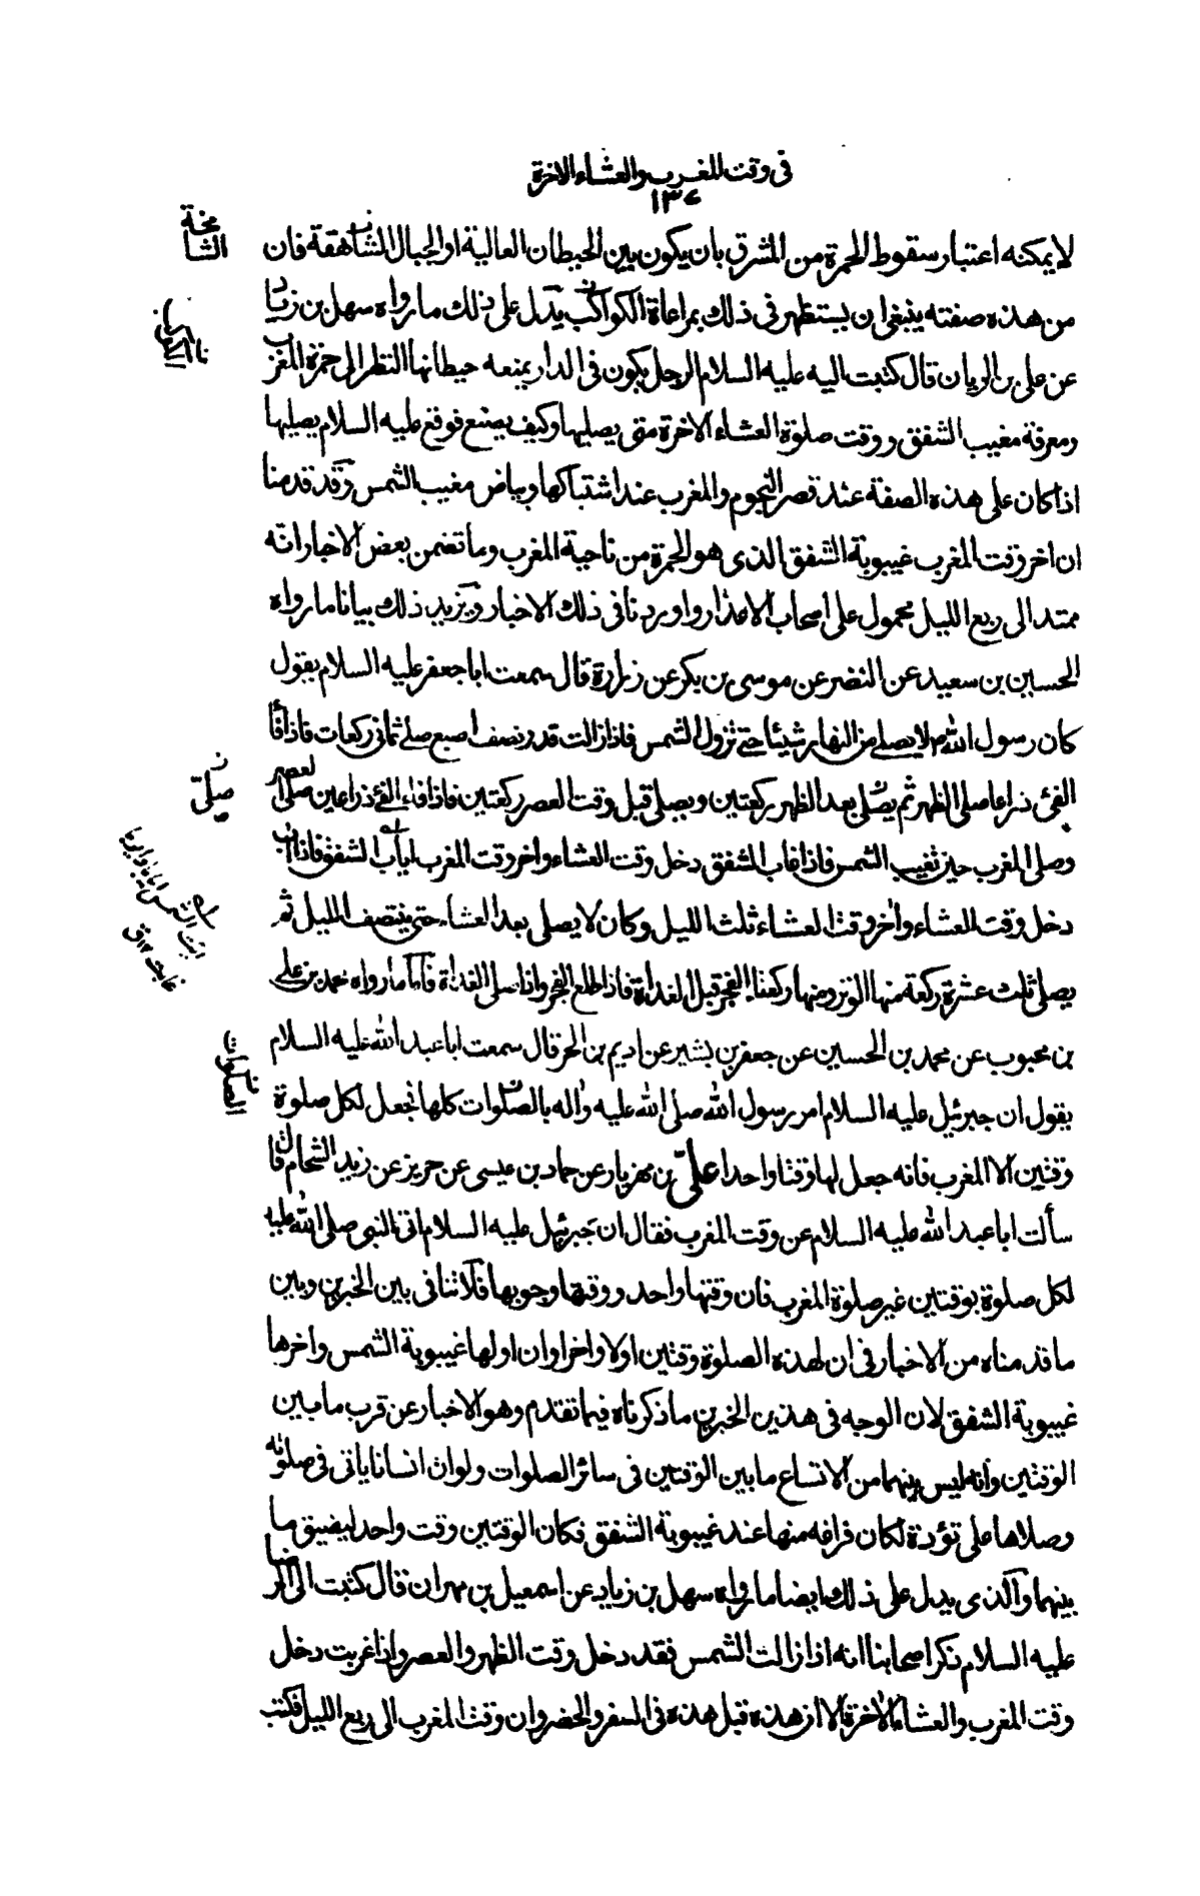 في وقت المغرب والعشاء الاخرة
١٣٤
لا يمكنه اعتبار سقوط الحمرة من المشرق بان يكون بين الحيطان العالية او الجبال الشاهقة فان
الشامخة
من هذه صفته ينبغي ان يستظهر في ذلك بمراعاة الكواكب يدل على ذلك ما رواه سهل بن زياد
عن علي بن الريان قال كتبت اليه عليه السلام الرجل يكون في الدار يمنعه حيطانها النظر الى حمرة المغرب
ومعرفة مغيب الشفق ووقت صلوة العشاء الاخرة متى يصليها وكيف يصنع فوقع عليه السلام يصليها
اذا كان على هذه الصفة عند قصر النجوم والمغرب عند اشتباكها وبياض مغيب الشمس وقد قدمنا
ان اخر وقت المغرب غيبوبة الشفق الذى هو الحمرة من ناحية المغرب وما تضمن بعض الاخبار انه
ممتد الى ربع الليل محمول على اصحاب الاعذار واوردنا في ذلك الاخبار ويزيد ذلك بيانا ما رواه
الحسين بن سعيد عن النضر عن موسى بن بكر عن زرارة قال سمعت ابا جعفر عليه السلام يقول
كان رسول الله ص لا يصلي من النهار شيئا حتى تزول الشمس فاذا زالت قدر نصف اصبع صلى ثماني ركعات فاذا فاء
الفئ ذراعا صلى الظهر ثم يصلي بعد الظهر ركعتين ويصلي قبل وقت العصر ركعتين فاذا فاء الفئ ذراعين صلى العصر
صلى
وصلى المغرب حين تغيب الشمس فاذا غاب الشفق دخل وقت العشاء واخر وقت المغرب اياب الشفق فاذا اب
دخل وقت العشاء واخر وقت العشاء ثلث الليل وكان لا يصلي بعد العشاء حتى ينتصف الليل ثم
يصلي ثلث عشرة ركعة منها الوتر ومنها ركعتا الفجر قبل الغداة فاذا طلع الفجر واذا صلى الغداة فاما ما رواه محمد بن علي
بن محبوب عن محمد بن الحسين عن جعفر بن بشير عن اديم بن الحر قال سمعت ابا عبد الله عليه السلام
يقول ان جبرئيل عليه السلام امر رسول الله صلى الله عليه واله بالصلوات كلها فجعل لكل صلوة
الصلوات
وقتين الا المغرب فانه جعل لها وقتا واحدا علي بن مهزيار عن حماد بن عيسى عن حريز عن زيد الشحام قال
سألت ابا عبد الله عليه السلام عن وقت المغرب فقال ان جبرئيل عليه السلام اتى النبى صلى الله عليه
لكل صلوة بوقتين غير صلوة المغرب فان وقتها واحد ووقتها وجوبها فلا تنافى بين الخبرين وبين
ما قدمناه من الاخبار في ان لهذه الصلوة وقتين اولا واخرا وان اولها غيبوبة الشمس واخرها
غيبوبة الشفق لان الوجه في هذين الخبرين ما ذكرناه فيما تقدم وهو الاخبار عن قرب ما بين
الوقتين وانه ليس بينهما من الاتساع ما بين الوقتين في سائر الصلوات ولو ان انسانا يأتى في صلوته
وصلاها على تؤدة لكان فراغه منها عند غيبوبة الشفق فكان الوقتين وقت واحد لضيق ما
بينهما والذى يدل على ذلك ايضا ما رواه سهل بن زياد عن اسمعيل بن مهران قال كتبت الى الرضا
عليه السلام ذكر اصحابنا انه اذا زالت الشمس فقد دخل وقت الظهر والعصر واذا غربت دخل
وقت المغرب والعشاء الاخرة الا ان هذه قبل هذه في السفر والحضر وان وقت المغرب الى ربع الليل فكتب